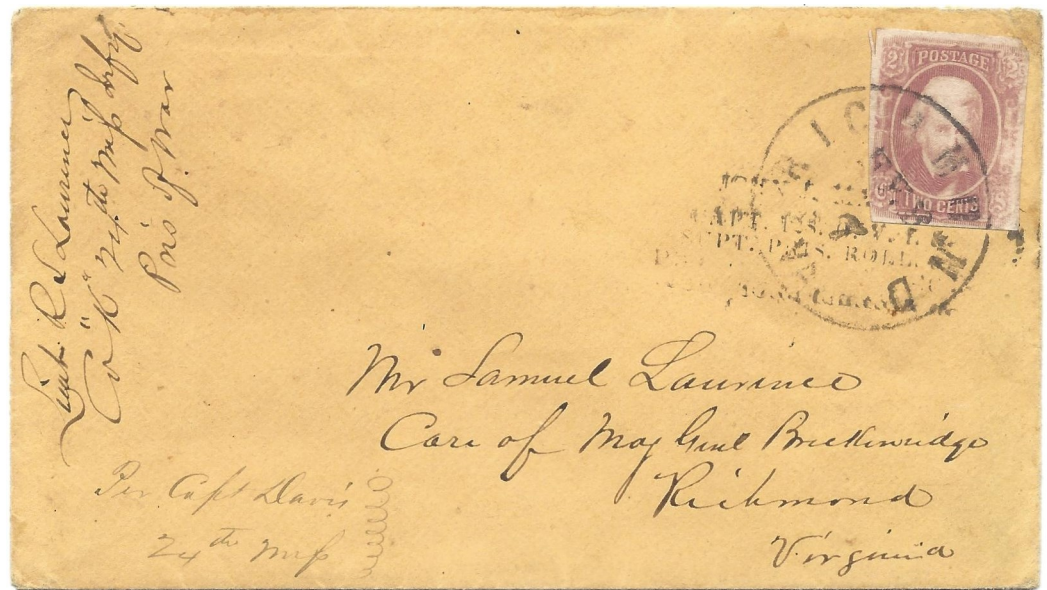 Lieut. R. S. Laurence
Co "K" 24th Miss Infty
Pris of War
2 POSTAGE 2
TWO CENTS
RICHMOND
CAPT.
SUPT. PRIS. ROLL.
Mr Samuel Laurence
Care of Maj Genl Breckenridge
Richmond
Virginia
Per Capt Davis
24th Miss